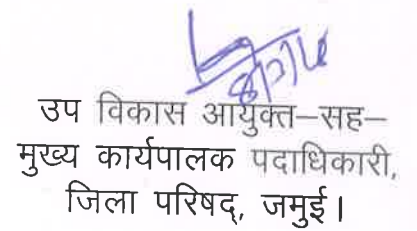 उप विकास आयुक्त–सह–
मुख्य कार्यपालक पदाधिकारी,
जिला परिषद्, जमुई।